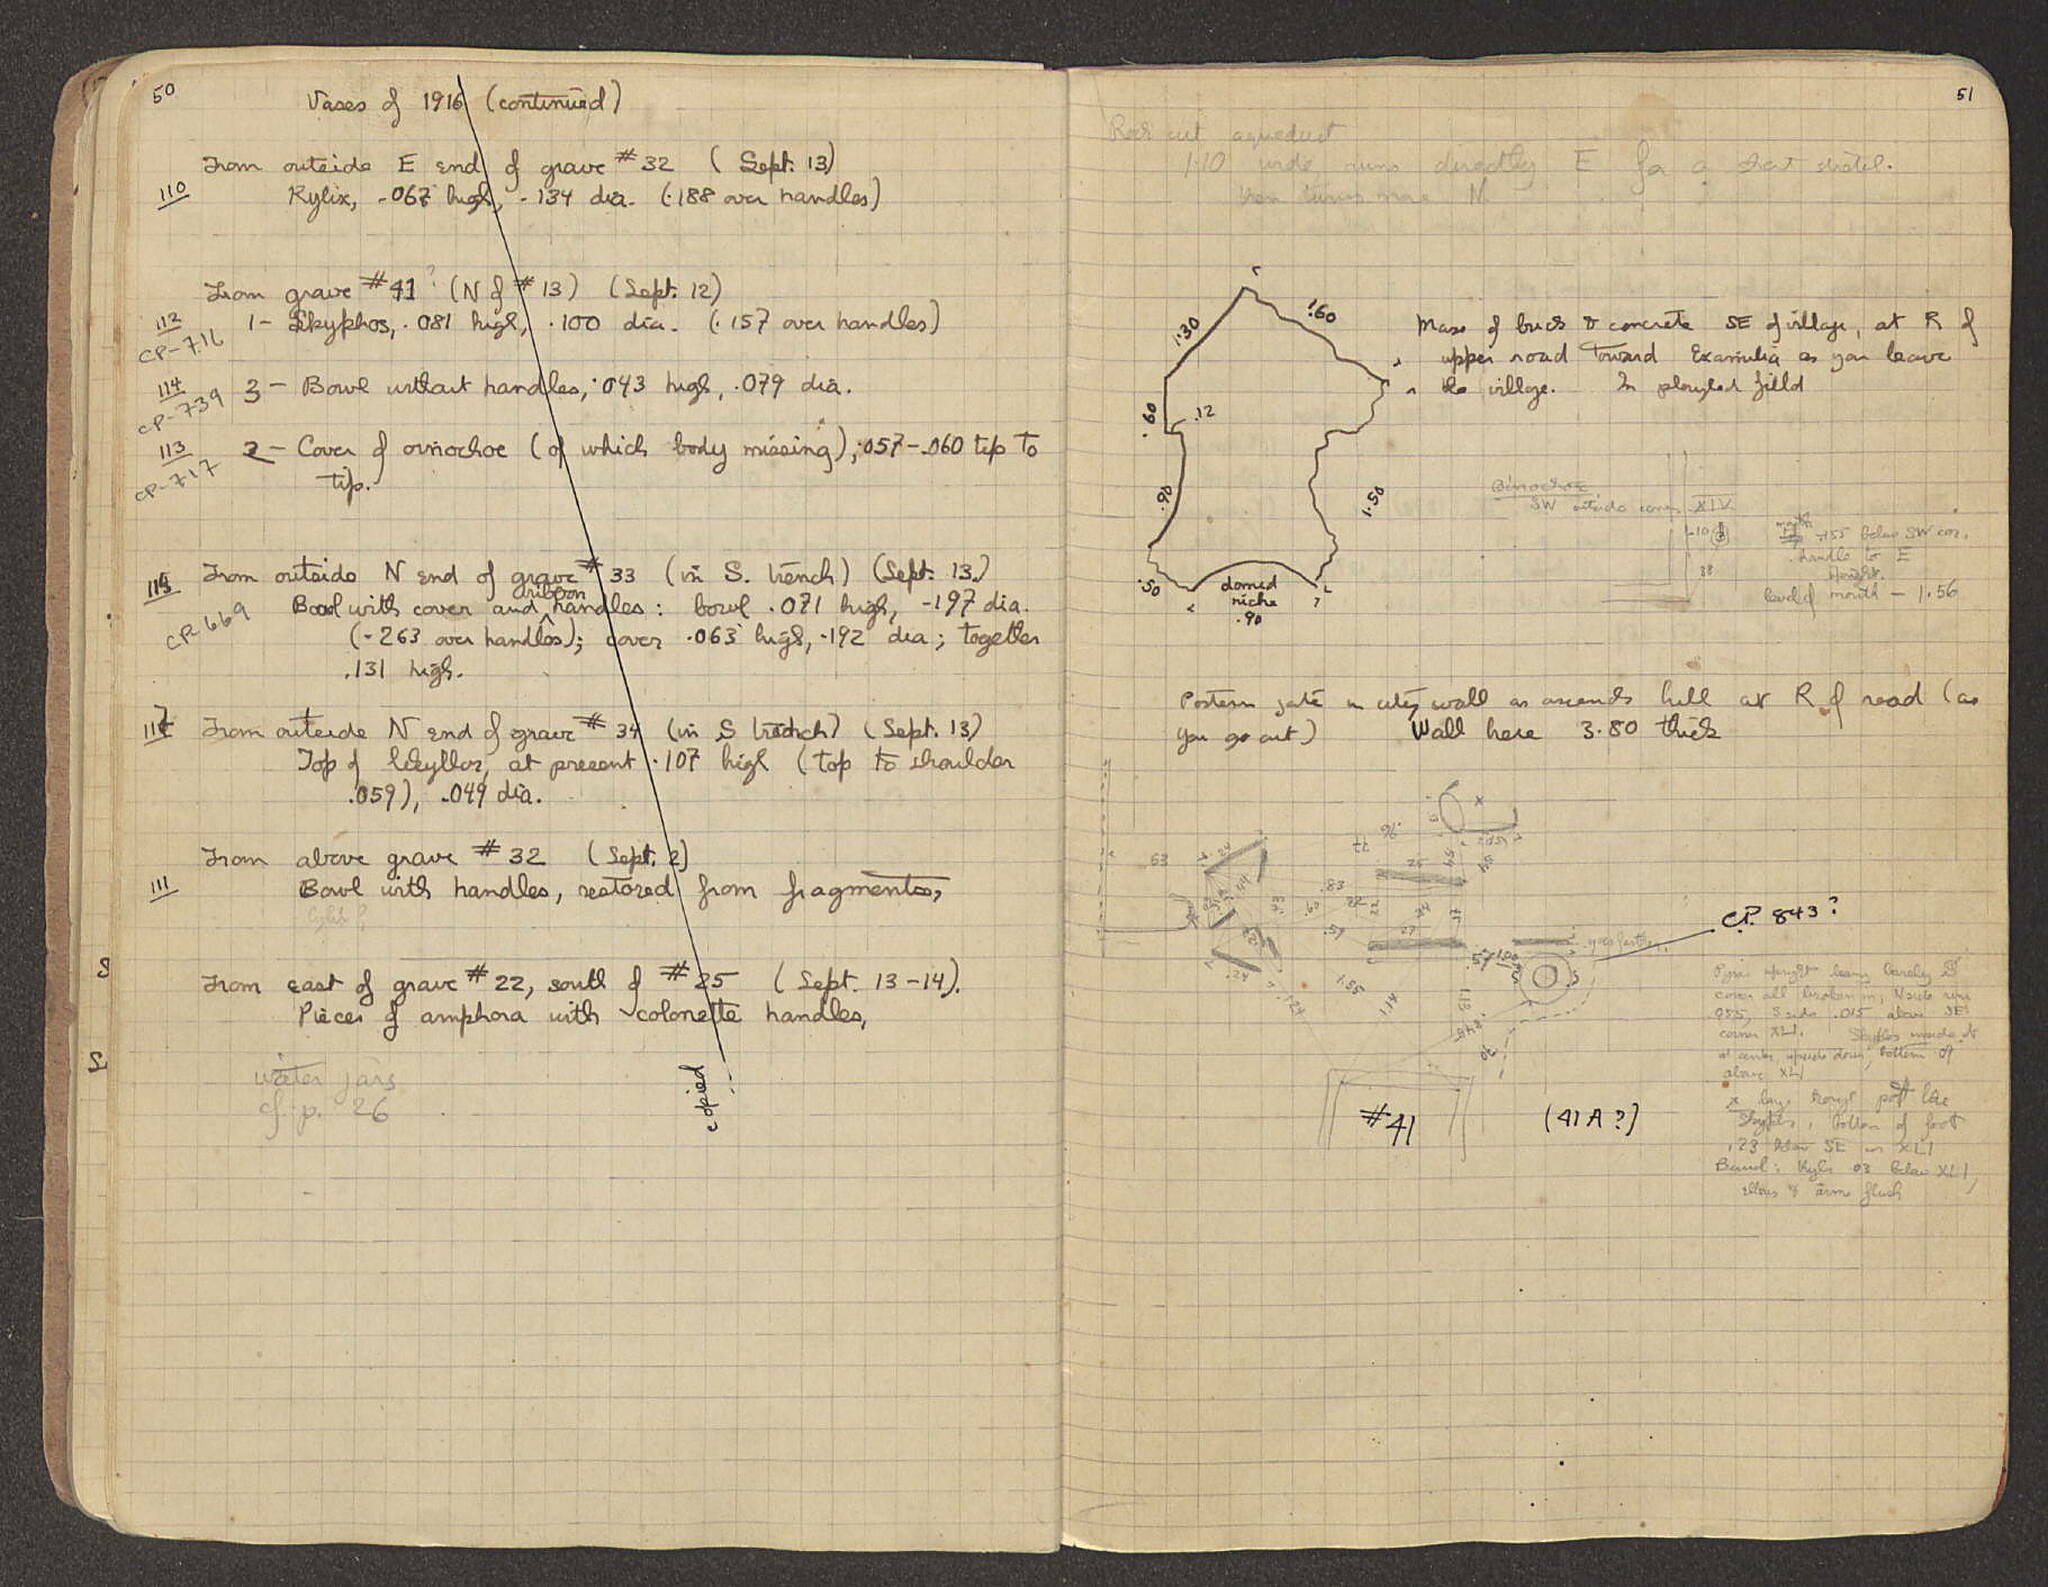 50
Vases of 1916 (continued)
From outside E end of grave #32 (Sept. 13)
110
Kylix, .067 high, .134 dia. (.188 over handles)
From grave #41? (N of #13) (Sept. 12)
112
CP-716
1- Skyphos, .081 high, .100 dia. (.157 over handles)
114
CP-739
3- Bowl without handles, .043 high, .079 dia.
113
CP-717
2- Cover of oinochoe (of which body missing), .057-.060 tip to
tip.
115
From outside N end of grave #33 (in S. trench) (Sept. 13)
CP-669
Bowl with cover and ribbon handles: bowl .071 high, .197 dia.
(.263 over handles); cover .063 high, .192 dia; together
.131 high.
117
From outside N end of grave #34 (in S trench) (Sept. 13)
Top of lekythos, at present .107 high (top to shoulder
.059), .049 dia.
From above grave #32 (Sept. 2)
111
Bowl with handles, restored from fragments,
S
From east of grave #22, south of #25 (Sept. 13-14).
Pieces of amphora with colonette handles,
S
water jars
cf. p. 26
copied
51
Rock cut aqueduct
1.10 wide, runs directly E for a short
then turns more N.
1.30
.60
.60
.12
.90
1.50
.50
domed
niche
.90
Mass of brick & concrete SE of village, at R of
upper road toward Examilia as you leave
the village. In ployed field
Oinochoe
SW outside corner XIV
.10
38
.155 below SW cor.
handle to E
level of mouth - 1.56
Postern gate in city wall as ascends hill at R of road (as
you go out) Wall here 3.80 thick
63
.96
77
.83
.60
.51
27
22
.24
1.35
1.14
1.24
.57
CP. 843?
Pyxis upright leaning barely S
cover all broken in; N side rim
.055, S side .015 above SE
corner XLI. Skyphos inside it
at center, upside down, bottom of
above XLI
skyphos, bottom of foot
.23 below SE cor XLI
Kylix 03 below XLI,
#41
(41A?)